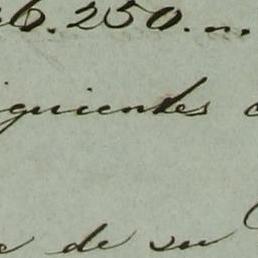 6.250...
iguientes
de su